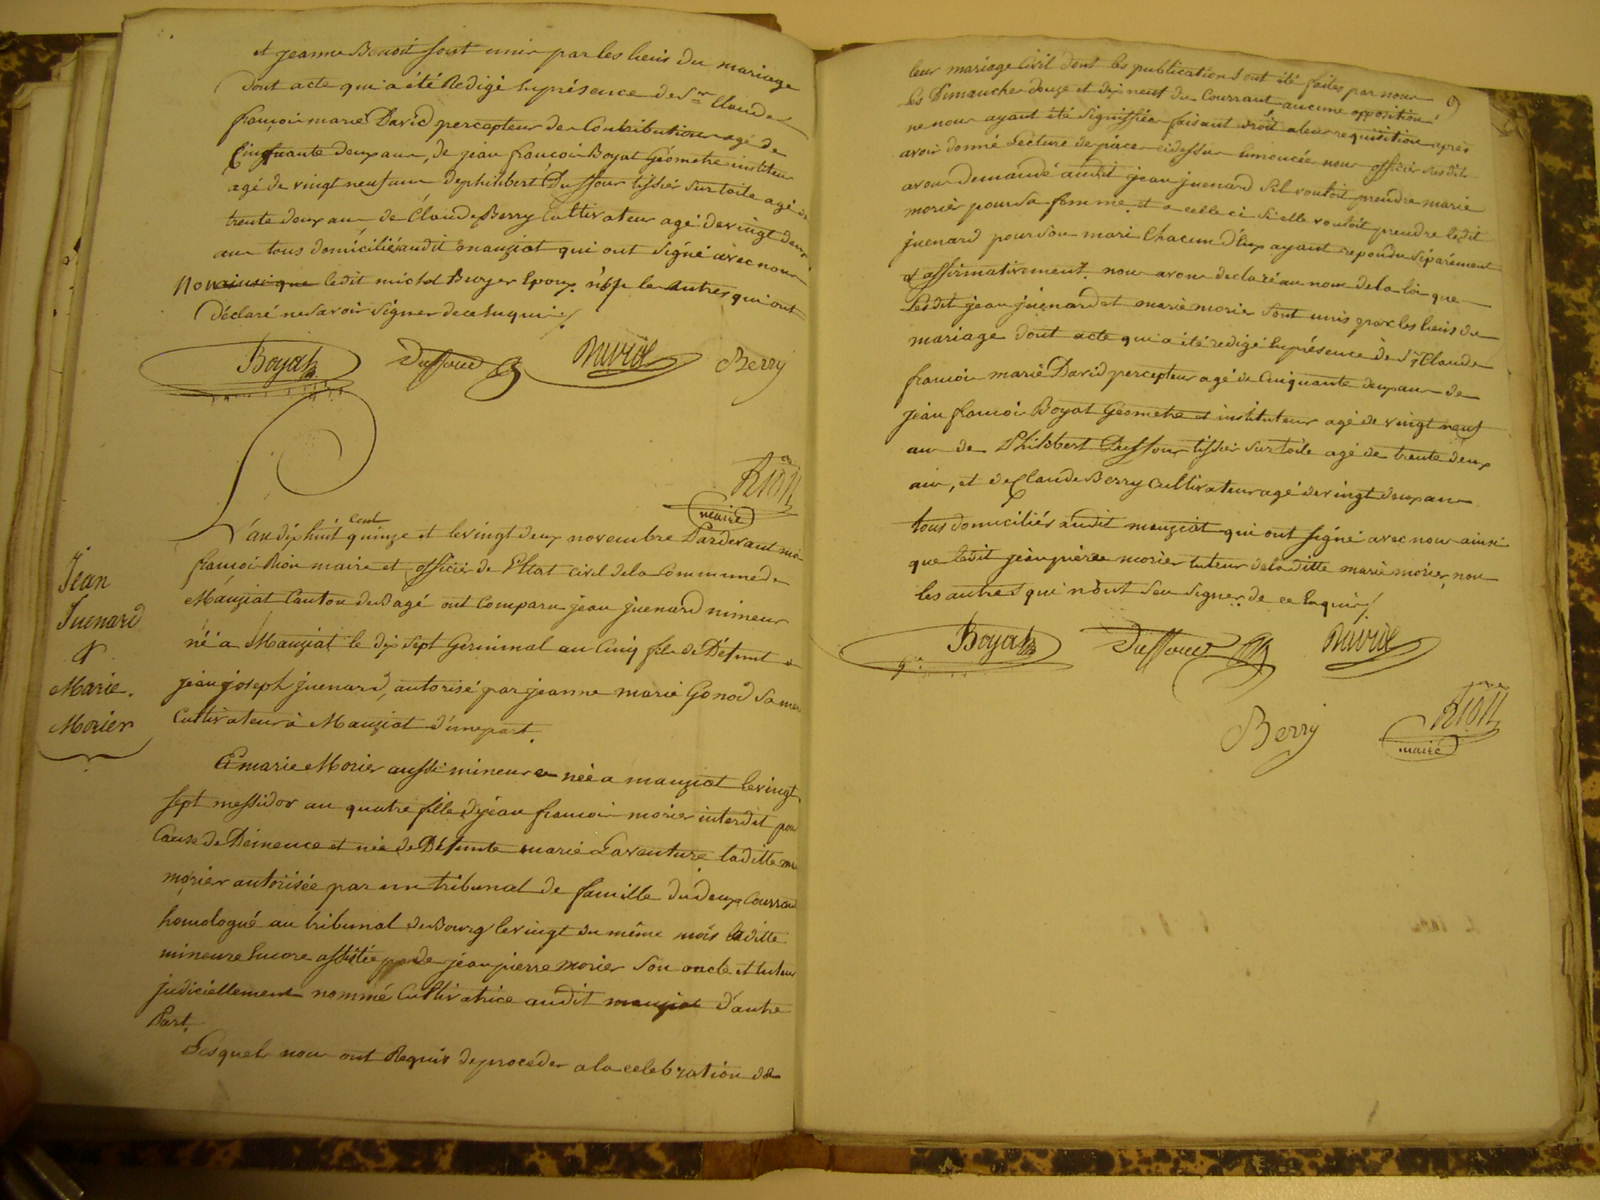 et jeanne Benoit sont unir par les liens du mariage
Dont acte qui a été Redigé En présence de Sr. Claude
françoir marie David percepteur der Contributionr agé de
Cinquante deux anr, de jean françoir Boyat Géometre instituteur
agé de vingt neuf anr de philibert Duffour tissier sur toile agé de
trente deux anr de Claude Berry Cultivateur agé de vingt deux
anr tous domiciliér audit mauziat qui ont signé avec nour
Non ainsi que ledit michel Broyer Epoux, les autres qui ont
Déclaré ne savoir signer de ce Enquir
Boyat Duffour David Berry
Rion
maire
L'an dix huit cent quinze et le vingt deux novembre Pardevant moi
françoir Rion maire et officier de l'Etat civil de la Commune de
Mauziat Canton du Bagé ont Comparu jean juenard mineur
né a Mauziat le dix sept Germinal an Cinq fils de Défunt
jean joseph juenard, autorisé par jeanne marie Gonod sa mere
Cultivateur à Mauziat d'une part.
Jean
Juenard
&
Marie
Morier
Et marie Morier aussi mineure née a mauziat le vingt
sept messidor an quatre fille de jean françoir morier interdit pour
Cause de Démence et née de Défunte marie Laventure laditte
morier autorisée par un tribunal de famille du deux Courrant
homologué au tribunal de Bourg le vingt du même mois laditte
mineure Encore assistée de jean pierre morier son oncle et tuteur
judiciellement nommé Cultivatrice audit mauziat d'autre
Part.
Lesquels nour ont Requis de proceder a la celebration de
9
leur mariage Civil dont les publications ont été faites par nour
les Dimancher douze et dix neuf du Courrant aucune opposition
ne nour ayant été signiffiée faisant droit a leur requisition aprés
avoir donné Lecture de piecer cidessur Ennoncée nour officier susdit
avonr Demandé audit jean juenard s'il vouloit prendre marie
morier pour sa femme et a celle ci si elle vouloit prendre ledit
juenard pour son mari Chacun d'Eux ayant repondu séparément
& affirmativement. nour avonr declaré au nom de la loi que
Lesdit jean juenard et marie morier sont unis par les liens du
mariage dont acte qui a été redigé En présence de Sr. Claude
françoir marie David percepteur agé de Cinquante deux anr de
jean françoir Boyat Géometre et instituteur agé de vingt neuf
anr de Philibert Duffour tissier sur toile agé de trente deux
anr, et de Claude Berry Cultivateur agé de vingt deux anr
tous domiciliér audit mauziat qui ont signé avec nour ainsi
que ledit jean pierre morier tuteur de la ditte marie morier, non
les autres qui n'ont seu signer. de ce Enquir
Boyat Duffour David
Berry
Rion
maire